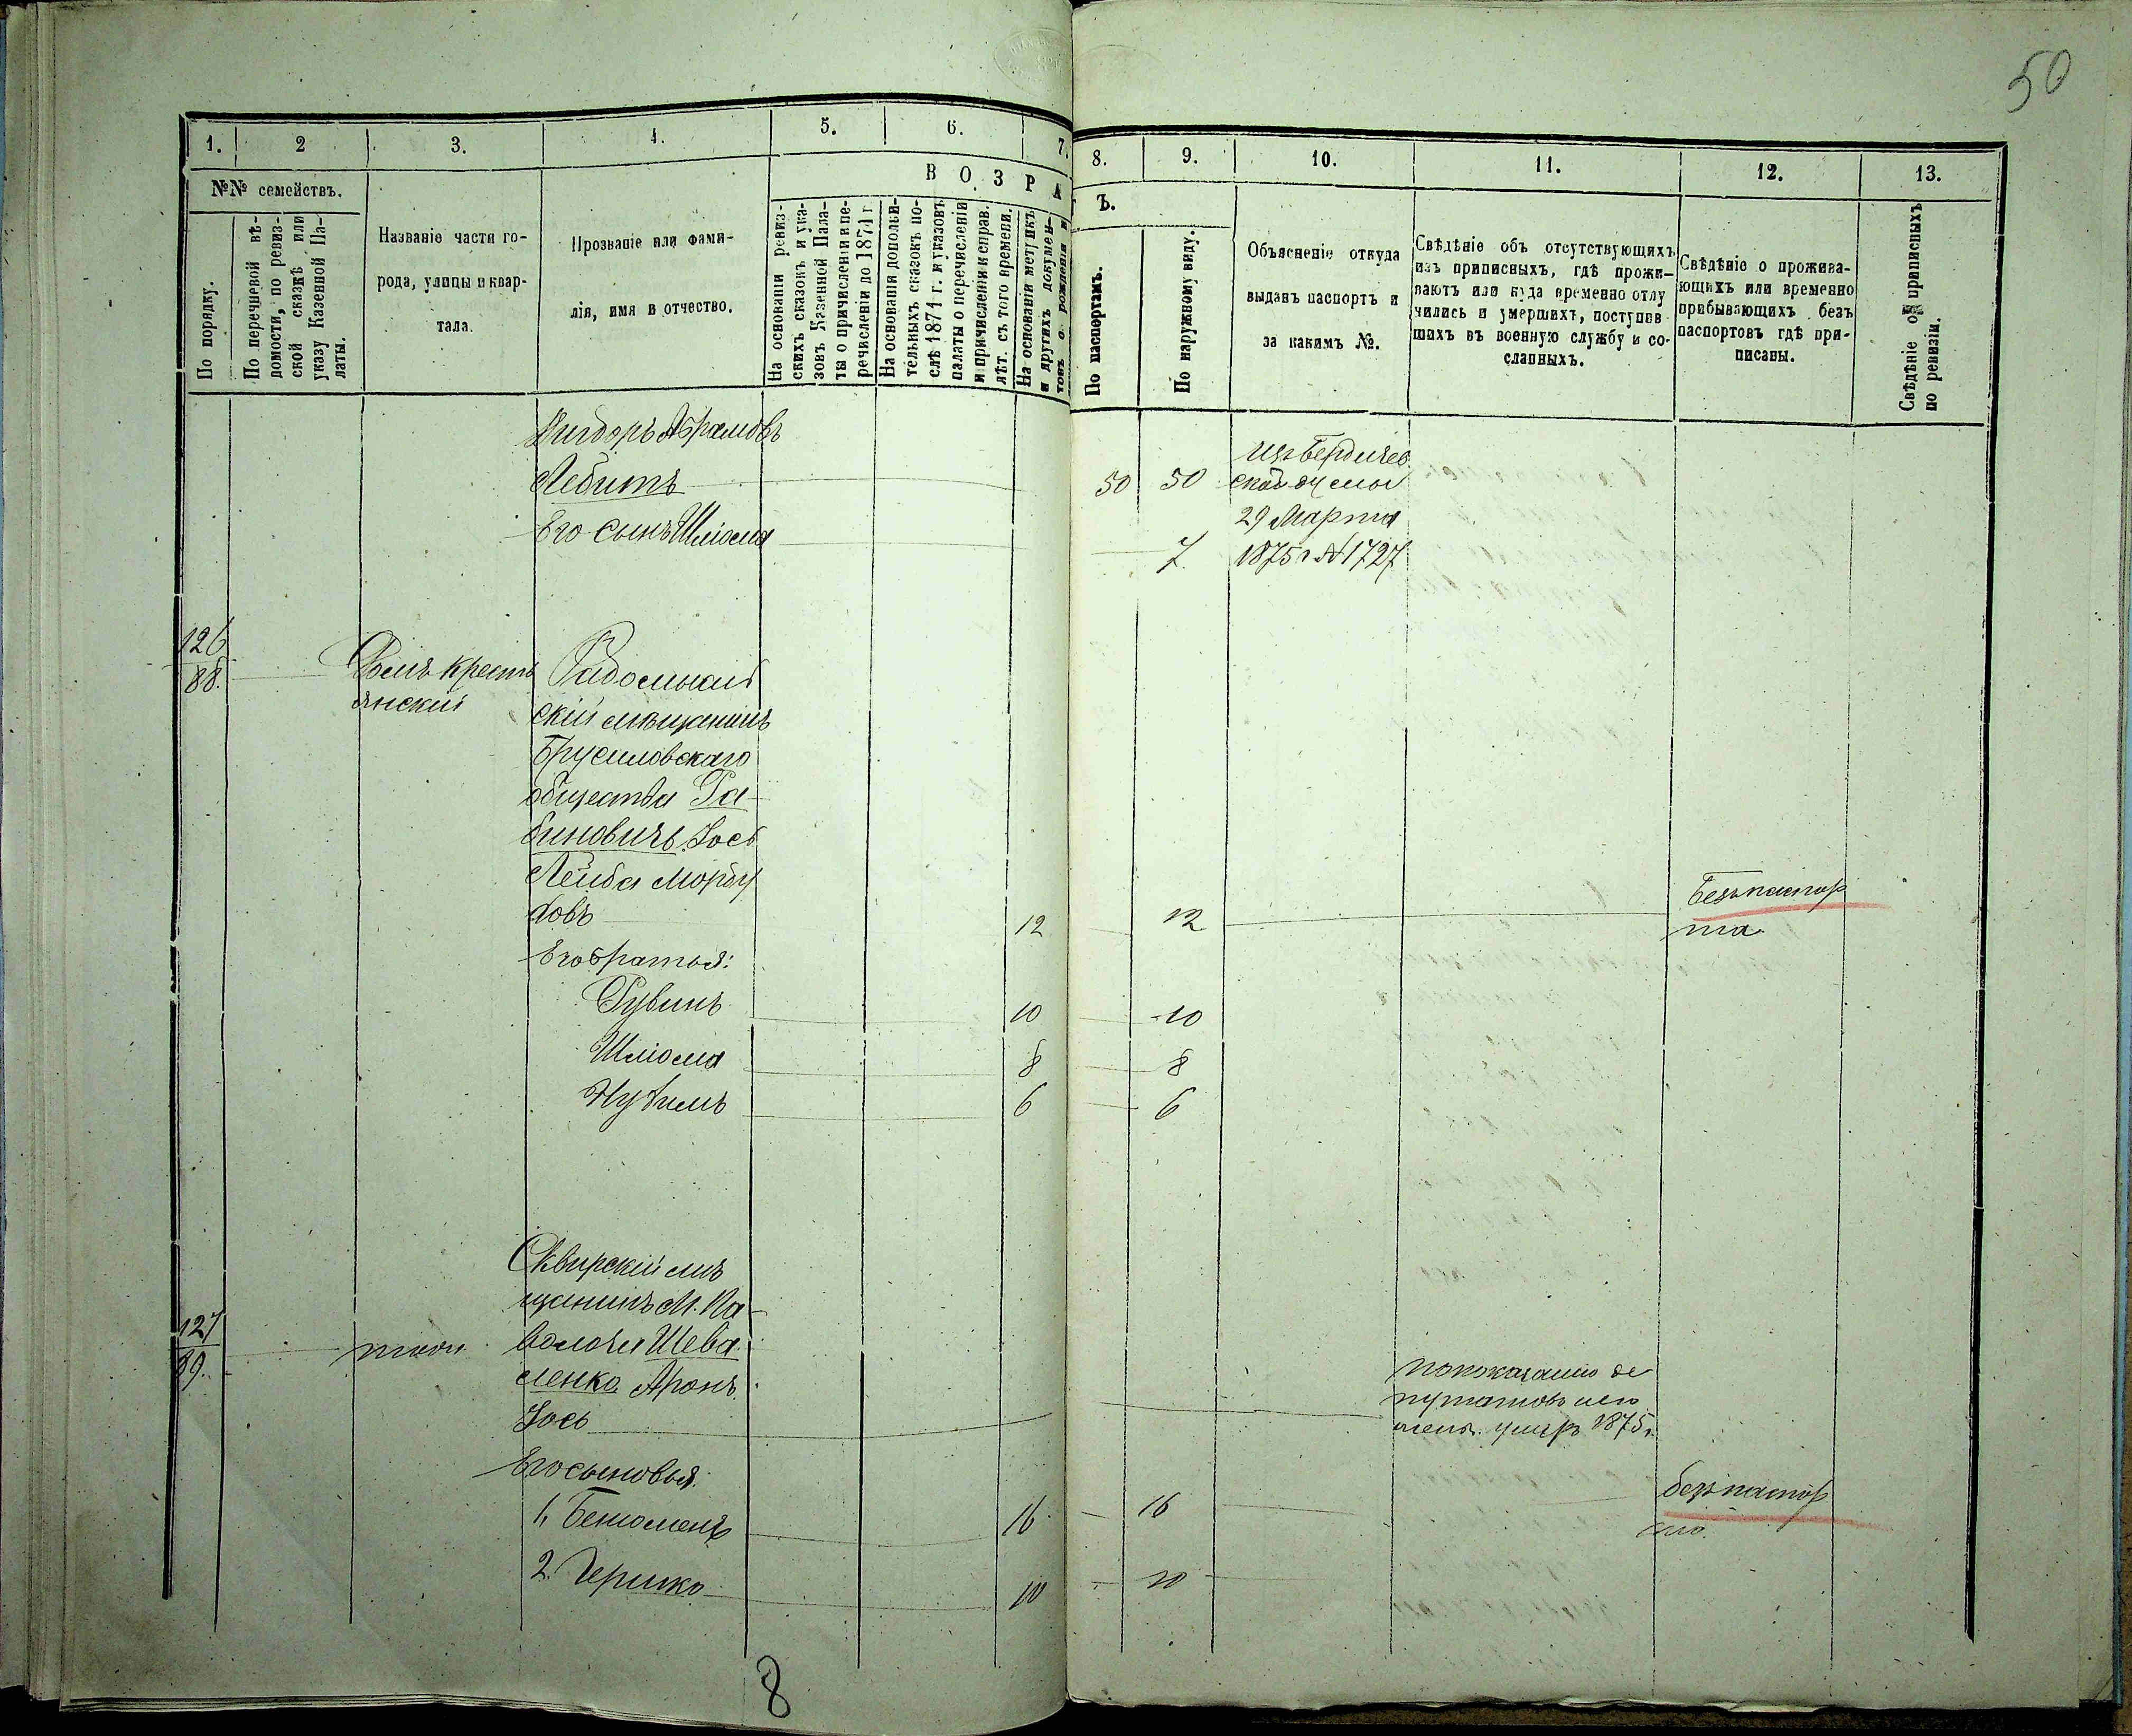 50
1.
2
3.
4.
5.
6.
7.
8.
9.
10.
11.
12.
13.
№№ семействъ.
По порядку.
По перечневой вѣ-
домости, по ревиз-
ской сказкѣ или
указу Казенной Па-
латы.
Названіе части го-
рода, улицы и квар-
тала.
Прозваніе или фами-
лія, имя и отчество.
ВОЗРА
На основаніи ревиз-
скихъ сказокъ и ука-
зовъ Казенной Пала-
ты о причисленіи и пе-
речисленіи до 1871 г.
На основаніи дополни-
тельныхъ сказокъ по-
слѣ 1871 г. и указовъ
палаты о перечисленіи
и причисленіи и справ.
лѣт. съ того времени.
На основаніи метрикъ
и другихъ докумен-
товъ о рожденіи и
Ъ.
По паспортамъ.
По наружному виду.
Объясненіе откуда
выданъ паспортъ и
за какимъ №.
Свѣдѣніе объ отсутствующихъ
изъ приписныхъ, гдѣ прожи-
ваютъ или куда временно отлу
чились и умершихъ, поступив
шихъ въ военную службу и со-
сланныхъ.
Свѣдѣніе о прожива-
ющихъ или временно
прибывающихъ безъ
паспортовъ гдѣ при-
писаны.
Свѣдѣніе объ приписныхъ
по ревизіи.
Абрамовъ
Лебитъ
50 50
Его сынъ Шліома
7
изъ Бердичев
ской думы
29 Марта
1875 г №1727
126
88.
Домъ кресть
янскій
Радомысль
скій мѣщанинъ
Брусиловскаго
общества Ра-
биновичъ Іось
Лейба Морду
ховъ
12 12
Безъ паспор
та
Его братья:
Рувинъ
10 10
Шліома
8 8
Нухимъ
6 6
Сквирскій мѣ
щанинъ М. Па-
127
89.
волочи Шева
ленко Аронъ
Іось
по показанію де
путатовъ
умеръ 1875 г.
Его сыновья:
1, Беньоменъ
16 16
безъ паспор
та.
2. Гершко
10 10
8